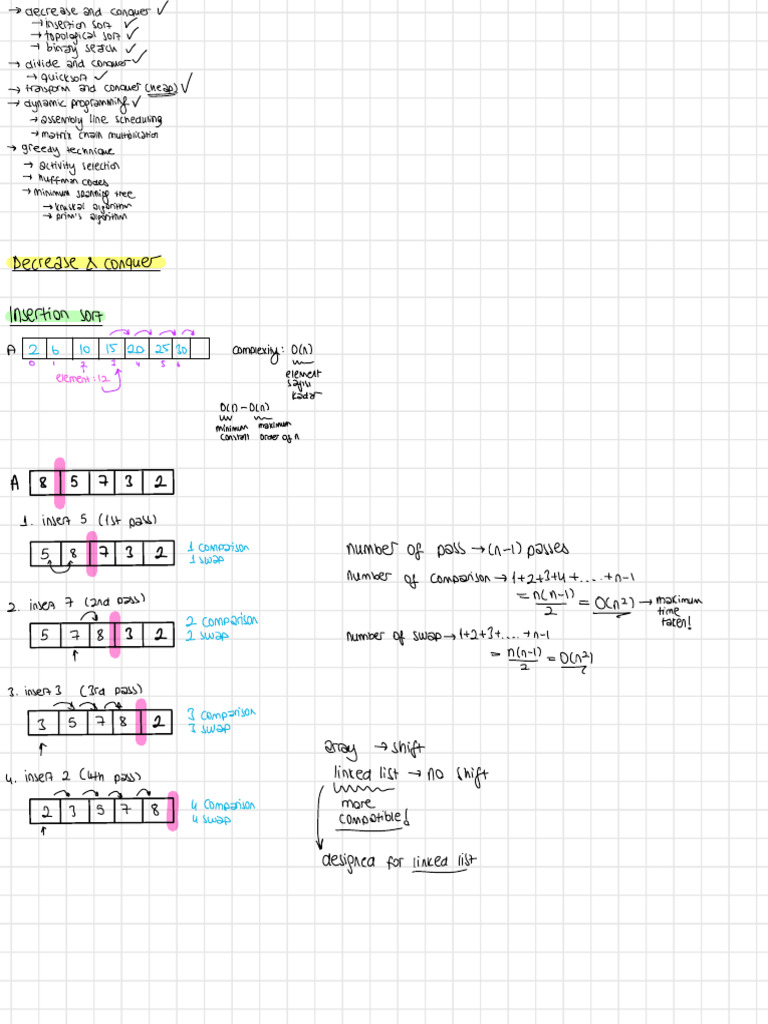 → decrease and conquer ✓
→ insertion sort ✓
→ topological sort ✓
→ binary search ✓
→ divide and conquer ✓
→ quicksort ✓
→ transform and conquer (heap) ✓
→ dynamic programming ✓
→ assembly line scheduling
→ matrix chain multiplication
→ greedy technique
→ activity selection
→ huffman codes
→ minimum spanning tree
→ kruskal algorithm
→ prim's algorithm
Decrease & conquer
Insertion sort
A 2 6 10 15 20 25 30
0 1 2 3 4 5 6
element: 12
complexity: O(n)
element
sayısı
kadar
O(n - O(n)
minimum maximum
constant order of n
A 8 5 7 3 2
1. insert 5 (1st pass)
5 8 7 3 2
1 comparison
1 swap
2. insert 7 (2nd pass)
5 7 8 3 2
2 comparison
2 swap
3. insert 3 (3rd pass)
3 5 7 8 2
3 comparison
3 swap
4. insert 2 (4th pass)
2 3 5 7 8
4 comparison
4 swap
number of pass → (n-1) passes
number of comparison → 1+2+3+4+....+n-1
= n(n-1)/2 = O(n²) → maximum
time
taken!
number of swap → 1+2+3+....+n-1
= n(n-1)/2 = O(n²)
array → shift
linked list → no shift
more
compatible!
designed for linked list